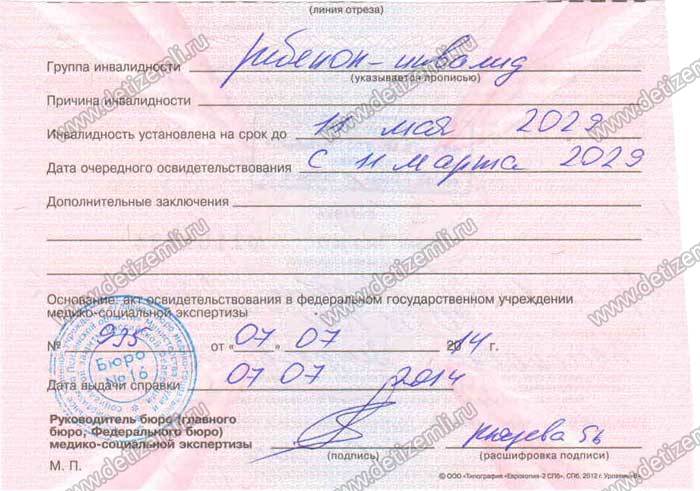 (линия отреза)
Группа инвалидности ребенок-инвалид
(указывается прописью)
Причина инвалидности
Инвалидность установлена на срок до 11 мая 2029
Дата очередного освидетельствования с 11 марта 2029
Дополнительные заключения
Основание: акт освидетельствования в федеральном государственном учреждении
медико-социальной экспертизы
№ 935 от « 07 » 07 2014 г.
Бюро
№16
Дата выдачи справки 07 07 2014
Руководитель бюро (главного
бюро, Федерального бюро)
медико-социальной экспертизы
(подпись) (расшифровка подписи)
М. П.
© ООО «Типография «Еврокопия-2 СПб», СПб, 2012 г. Уровень «В»
www.detizemli.ru